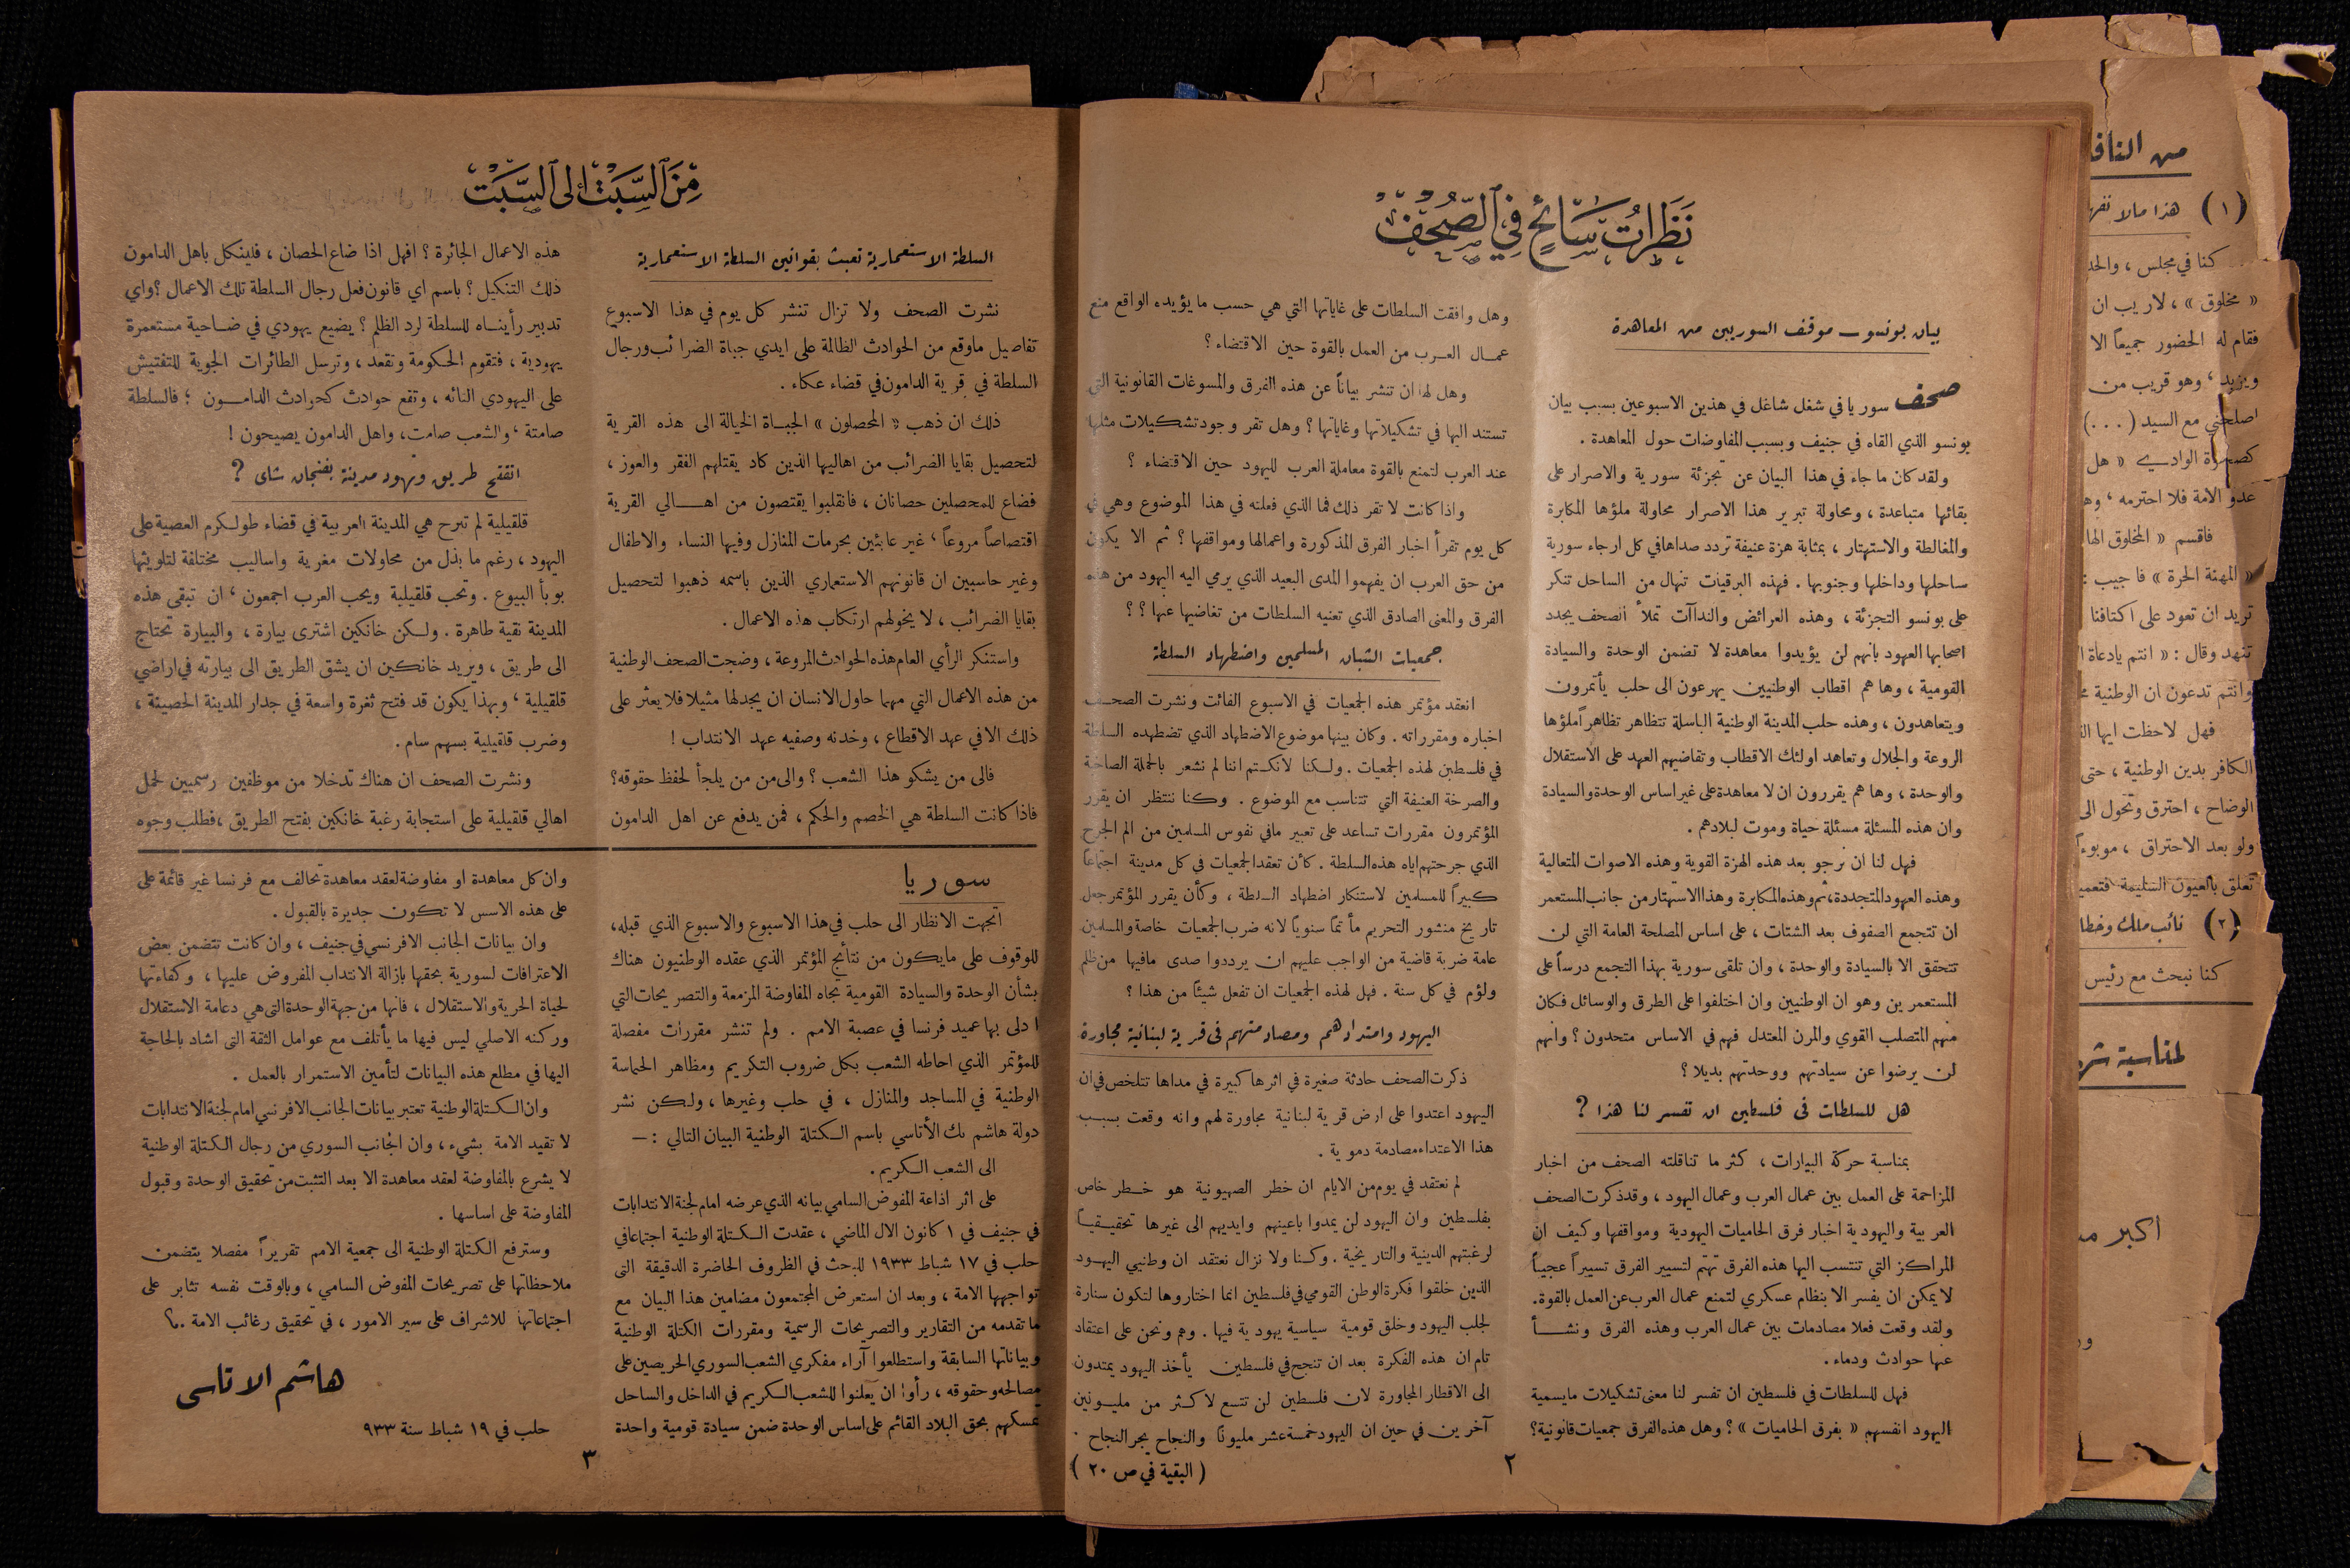 نظرات سائح في الصحف
بيان بونسو — موقف السوريين من المعاهدة
صحف سوريا في شغل شاغل في هذين الاسبوعين بسبب بيان
بونسو الذي القاه في جنيف وبسبب المفاوضات حول المعاهدة .
ولقد كان ما جاء في هذا البيان عن تجزئة سورية والاصرار على
بقائها متباعدة ، ومحاولة تبرير هذا الاصرار محاولة ملؤها المكابرة
والمغالطة والاستهتار ، بمثابة هزة عنيفة تردد صداها في كل ارجاء سورية
ساحلها وداخلها وجنوبها . فهذه البرقيات تنهال من الساحل تنكر
على بونسو التجزئة ، وهذه العرائض والنداآت تملأ الصحف يجدد
اصحابها العهود بانهم لن يؤيدوا معاهدة لا تضمن الوحدة والسيادة
القومية ، وها هم اقطاب الوطنيين يهرعون الى حلب يأتمرون
ويتعاهدون ، وهذه حلب المدينة الوطنية الباسلة تتظاهر تظاهراً ملؤها
الروعة والجلال وتعاهد اولئك الاقطاب وتقاضيهم العهد على الاستقلال
والوحدة ، وها هم يقررون ان لا معاهدة على غير اساس الوحدة والسيادة
وان هذه المسئلة مسئلة حياة وموت لبلادهم .
فهل لنا ان نرجو بعد هذه الهزة القوية وهذه الاصوات المتعالية
وهذه العهود المتجددة ، ثم وهذه المكابرة وهذا الاستهتار من جانب المستعمر
ان تتجمع الصفوف بعد الشتات ، على اساس المصلحة العامة التي لن
تتحقق الا بالسيادة والوحدة ، وان تلقى سورية بهذا التجمع درساً على
المستعمرين وهو ان الوطنيين وان اختلفوا على الطرق والوسائل فكان
منهم المتصلب القوي والمرن المعتدل فهم في الاساس متحدون ؟ وانهم
لن يرضوا عن سيادتهم ووحدتهم بديلا ؟
هل للسلطات في فلسطين ان تفسر لنا هذا ؟
بمناسبة حركة البيارات ، كثر ما تناقلته الصحف من اخبار
المزاحمة على العمل بين عمال العرب وعمال اليهود ، وقد ذكرت الصحف
العربية واليهودية اخبار فرق الحاميات اليهودية ومواقفها وكيف ان
المراكز التي تنتسب اليها هذه الفرق تهتم لتسيير الفرق تسييراً عجيباً
لا يمكن ان يفسر الا بنظام عسكري لتمنع عمال العرب عن العمل بالقوة.
ولقد وقعت فعلا مصادمات بين عمال العرب وهذه الفرق ونشــأ
عنها حوادث ودماء .
فهل للسلطات في فلسطين ان تفسر لنا معنى تشكيلات ما يسمية
اليهود انفسهم « بفرق الحاميات » ؟ وهل هذه الفرق جمعيات قانونية ؟
وهل وافقت السلطات على غاياتها التي هي حسب ما يؤيده الواقع منع
عمــال العــرب من العمل بالقوة حين الاقتضاء ؟
وهل لها ان تنشر بياناً عن هذه الفرق والمسوغات القانونية التي
تستند اليها في تشكيلاتها وغاياتها ؟ وهل تقر وجود تشكيلات مثلها
عند العرب لتمنع بالقوة معاملة العرب لليهود حين الاقتضاء ؟
واذا كانت لا تقر ذلك فما الذي فعلته في هذا الموضوع وهي في
كل يوم تقرأ اخبار الفرق المذكورة واعمالها ومواقفها ؟ ثم الا يكون
من حق العرب ان يفهموا المدى البعيد الذي يرمي اليه اليهود من هذه
الفرق والمعنى الصادق الذي تعنيه السلطات من تغاضيها عنها ؟ ؟
جمعيات الشبان المسلمين واضطهاد السلطة
انعقد مؤتمر هذه الجمعيات في الاسبوع الفائت ونشرت الصحــف
اخباره ومقرراته . وكان بينها موضوع الاضطهاد الذي تضطهده السلطة
في فلسطين لهذه الجمعيات . ولــكنا لا نكــتم اننا لم نشعر بالحملة الصاخبة
والصرخة العنيفة التي تتناسب مع الموضوع . وكنا ننتظر ان يقرر
المؤتمرون مقررات تساعد على تعبير ما في نفوس المسلمين من الم الجرح
الذي جرحتهم اياه هذه السلطة . كأن تعقد الجمعيات في كل مدينة اجتماعاً
كــبيراً للمسلمين لاستنكار اضطهاد السلطة ، وكأن يقرر المؤتمر جعل
تاريخ منشور التحريم مأتمًا سنوياً لانه ضرب الجمعيات خاصة والمسلمين
عامة ضربة قاضية من الواجب عليهم ان يرددوا صدى ما فيها من ظلم
ولؤم في كل سنة . فهل لهذه الجمعيات ان تفعل شيئاً من هذا ؟
اليهود وامتدادهم ومصادمتهم في قرية لبنانية مجاورة
ذكرت الصحف حادثة صغيرة في اثرها كبيرة في مداها تتلخص في ان
اليهود اعتدوا على ارض قرية لبنانية مجاورة لهم وانه وقعت بسبــب
هذا الاعتداء مصادمة دموية .
لم نعتقد في يوم من الايام ان خطر الصهيونية هو خــطر خاص
بفلسطين وان اليهود لن يمدوا باعينهم وايديهم الى غيرها تحقيــقــاً
لرغبتهم الدينية والتاريخية . وكــنا ولا نزال نعتقد ان وطنيي اليهــود
الذين خلقوا فكرة الوطن القومي في فلسطين انما اختاروها لتكون ستارة
لجلب اليهود وخلق قومية سياسية يهودية فيها . وهم ونحن على اعتقاد
تام ان هذه الفكرة بعد ان تنجح في فلسطين يأخذ اليهود يمتدون
الى الاقطار المجاورة لان فلسطين لن تتسع لاكــثر من مليــونين
آخرين في حين ان اليهود خمسة عشر مليونًا والنجاح يجر النجاح .
( البقية في ص ٢٠ )
٢
من السبت الى السبت
السلطة الاستعمارية تعبث بقوانين السلطة الاستعمارية
نشرت الصحف ولا تزال تنشر كل يوم في هذا الاسبوع
تفاصيل ماوقع من الحوادث الظالمة على ايدي جباة الضرائب ورجال
السلطة في قرية الدامون في قضاء عكاء .
ذلك ان ذهب « المحصلون » الجبــاة الخيالة الى هذه القرية
لتحصيل بقايا الضرائب من اهاليها الذين كاد يقتلهم الفقر والعوز ،
فضاع للمحصلين حصانان ، فانقلبوا يقتصون من اهــالي القرية
اقتصاصاً مروعاً ، غير عابئين بحرمات المنازل وفيها النساء والاطفال
وغير حاسبين ان قانونهم الاستعماري الذين باسمه ذهبوا لتحصيل
بقايا الضرائب ، لا يخولهم ارتكاب هذه الاعمال .
واستنكر الرأي العام هذه الحوادث المروعة ، وضجت الصحف الوطنية
من هذه الاعمال التي مهما حاول الانسان ان يجد لها مثيلا فلا يعثر على
ذلك الا في عهد الاقطاع ، وخدنه وصفيه عهد الانتداب !
فالى من يشكو هذا الشعب ؟ والى من من يلجأ لحفظ حقوقه ؟
فاذا كانت السلطة هي الخصم والحكم ، فمن يدفع عن اهل الدامون
هذه الاعمال الجائرة ؟ افهل اذا ضاع الحصان ، فلينكل باهل الدامون
ذلك التنكيل ؟ باسم اي قانون فعل رجال السلطة تلك الاعمال ؟ واي
تدبير رأينــاه للسلطة لرد الظلم ؟ يضيع يهودي في ضــاحية مستعمرة
يهودية ، فتقوم الحــكومة وتقعد ، وترسل الطائرات الجوية للتفتيش
على اليهودي التائه ، وتقع حوادث كحوادث الدامــون ؛ فالسلطة
صامتة ، والشعب صامت ، واهل الدامون يصيحون !
انفتح طريق وتهود مدينة بفنجان شاي ؟
قلقيلية لم تبرح هي المدينة العربية في قضاء طولــكرم العصية على
اليهود ، رغم ما بذل من محاولات مغرية واساليب مختلفة لتلويثها
بوبأ البيوع . وتحب قلقيلية ويحب العرب اجمعون ، ان تبقى هذه
المدينة نقية طاهرة . ولــكن خانكين اشترى بيارة ، والبيارة تحتاج
الى طريق ، ويريد خانكــين ان يشق الطريق الى بيارته في اراضي
قلقيلية ، وبهذا يكون قد فتح ثغرة واسعة في جدار المدينة الحصينة ،
وضرب قلقيلية بسهم سام .
ونشرت الصحف ان هناك تدخلا من موظفين رسميين لحمل
اهالي قلقيلية على استجابة رغبة خانكين بفتح الطريق ، فطلب وجوه
سوريا
اتجهت الانظار الى حلب في هذا الاسبوع والاسبوع الذي قبله،
للوقوف على مايكون من نتائج المؤتمر الذي عقده الوطنيون هناك
بشأن الوحدة والسيادة القومية تجاه المفاوضة المزمعة والتصريحات التي
ادلى بها عميد فرنسا في عصبة الامم . ولم تنشر مقررات مفصلة
للمؤتمر الذي احاطه الشعب بكل ضروب التكريم ومظاهر الحماسة
الوطنية في المساجد والمنازل ، في حلب وغيرها ، ولــكن نشر
دولة هاشم بك الأتاسي باسم الــكتلة الوطنية البيان التالي : —
الى الشعب الــكريم .
على اثر اذاعة المفوض السامي بيانه الذي عرضه امام لجنة الانتدابات
في جنيف في ١ كانون الال الماضي ، عقدت الــكــتلة الوطنية اجتماعا في
حلب في ١٧ شباط ١٩٣٣ للبحث في الظروف الحاضرة الدقيقة التي
تواجهها الامة ، وبعد ان استعرض المجتمعون مضامين هذا البيان مع
ما تقدمه من التقارير والتصريحات الرسمية ومقررات الكتلة الوطنية
وبياناتها السابقة واستطلعوا آراء مفكري الشعب السوري الحريصين على
مصالحه وحقوقه ، رأوا ان يعلنوا للشعب الــكريم في الداخل والساحل
تمسكهم بحق البلاد القائم على اساس الوحدة ضمن سيادة قومية واحدة
وان كل معاهدة او مفاوضة لعقد معاهدة تحالف مع فرنسا غير قائمة على
على هذه الاسس لا تكــون جديرة بالقبول .
وان بيانات الجانب الافرنسي في جنيف ، وان كانت تتضمن بعض
الاعترافات لسورية بحقها بازالة الانتداب المفروض عليها ، وكفاءتها
لحياة الحرية والاستقلال ، فانها من جهة الوحدة التي هي دعامة الاستقلال
وركنه الاصلي ليس فيها ما يأتلف مع عوامل الثقة التي اشاد بالحاجة
اليها في مطلع هذه البيانات لتأمين الاستمرار بالعمل .
وان الــكتلة الوطنية تعتبر بيانات الجانب الافرنسي امام لجنة الانتدابات
لا تقيد الامة بشيء ، وان الجانب السوري من رجال الكتلة الوطنية
لا يشرع بالمفاوضة لعقد معاهدة الا بعد التثبت من تحقيق الوحدة وقبول
المفاوضة على اساسها .
وسترفع الكتلة الوطنية الى جمعية الامم تقريراً مفصلا يتضمن
ملاحظاتها على تصريحات المفوض السامي ، وبالوقت نفسه تثابر على
اجتماعاتها للاشراف على سير الامور ، في تحقيق رغائب الامة ..
هاشم الاتاسي
حلب في ١٩ شباط سنة ٩٣٣
٣
من النافذ
( ١ ) هذا مالا نفه
كنا في مجلس ، والحد
« مخلوق » ، لاريب ان
فقام له الحضور جميعاً الا
ويزيد ، وهو قريب من
اصلحني مع السيد ( . . . )
الوادي « هل
عدو الامة فلا احترمه ، وه
فاقسم « المخلوق الها
« المهنة الحرة » فاجيب :
تريد ان تعود على اكتافنا
تنهد وقال : « انتم يادعاة ا
وانتم تدعون ان الوطنية
فهل لاحظت ايها
الكافر بدين الوطنية ، حتى
الوضاح ، احترق وتحول الى
ولو بعد الاحتراق ، موبوء
تعلق بالعيون السليمة فتعمي
( ٢ ) نائب ملك وخطا
كنا نبحث مع رئيس
لمناسبة شه
اكبر